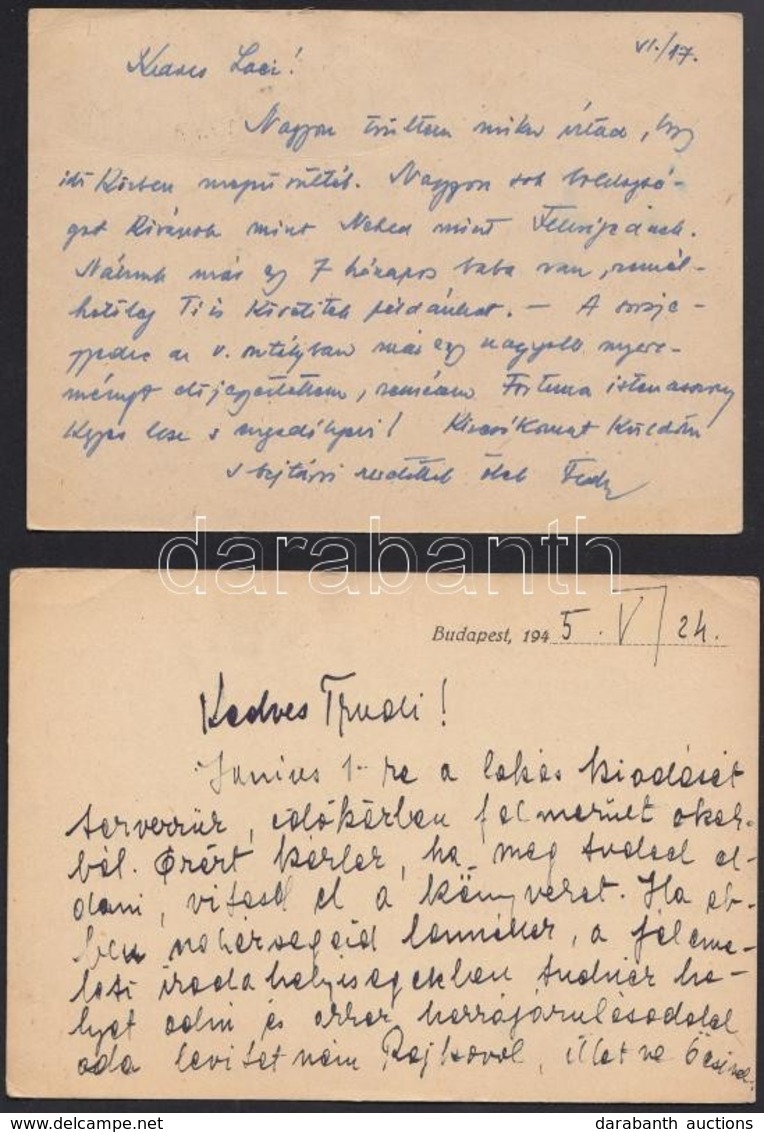 VI./17.
Kedves Laci!
Nagyon örültem mikor írtad, hogy
idő Közben megnősültél. Nagyon sok boldogsá-
got Kívánok mint Neked mint Feleségednek.
Nálunk már egy 7 hónapos baba van, remél-
hetőleg Ti is Követitek példánkat. – A
az v. osztályban már egy nagyobb nyere-
ményt, remélem Fortuna istenasszony
Kegyes lesz s Kézcsókomat Küldöm
s bajtársi ölel
darabanth
Budapest, 1945. V/24.
Kedves Trudi!
Június 1-re a lakás kiadását
tervezzük, időközben felmerült okok-
ból. Ezért kérlek, ha meg tudod ol-
dani, vitesd el a könyveket. Ha eb-
ben nehézségeid lennének, a féleme-
leti irodahelyiségekben tudnék he-
lyet adni és ehhez hozzájárulásoddal
oda levitetném Rajkóval, illetve Öcsivel.
darabanth auctions